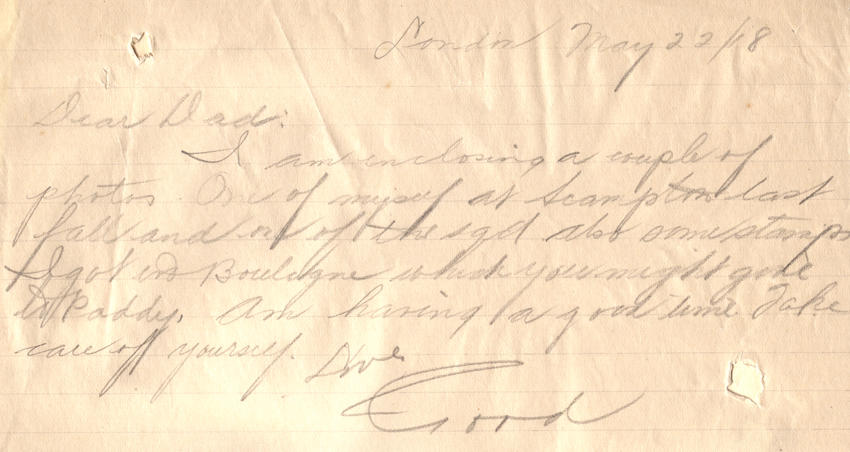 London May 22/18
Dear Dad:
I am enclosing a couple of
photos. One of myself at Scampton last
fall and one of the sqd also some stamps
I got in Boulogne which you might give
to Paddy. Am having a good time Take
care of yourself. Love
Gord